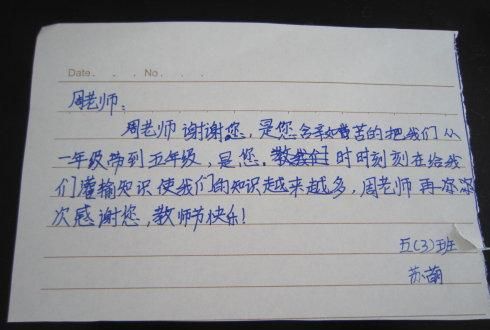 Date. . . No. . .
周老师:
周老师谢谢您,是您含辛茹苦的把我们从
一年级带到五年级,是您,时时刻刻在给我
们灌输知识使我们的知识越来越多,周老师再一
次感谢您,教师节快乐!
五(3)班
苏萌